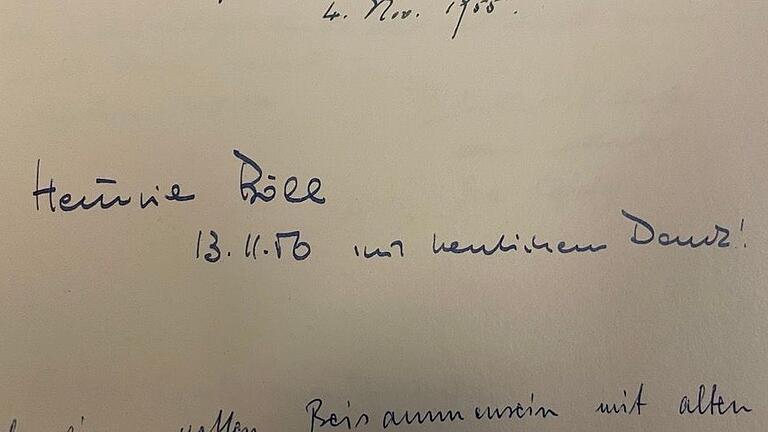 4. Nov. 1955.
Heinrich Böll
13.11.56 mit herzlichem Dank!
Beisammensein mit alten